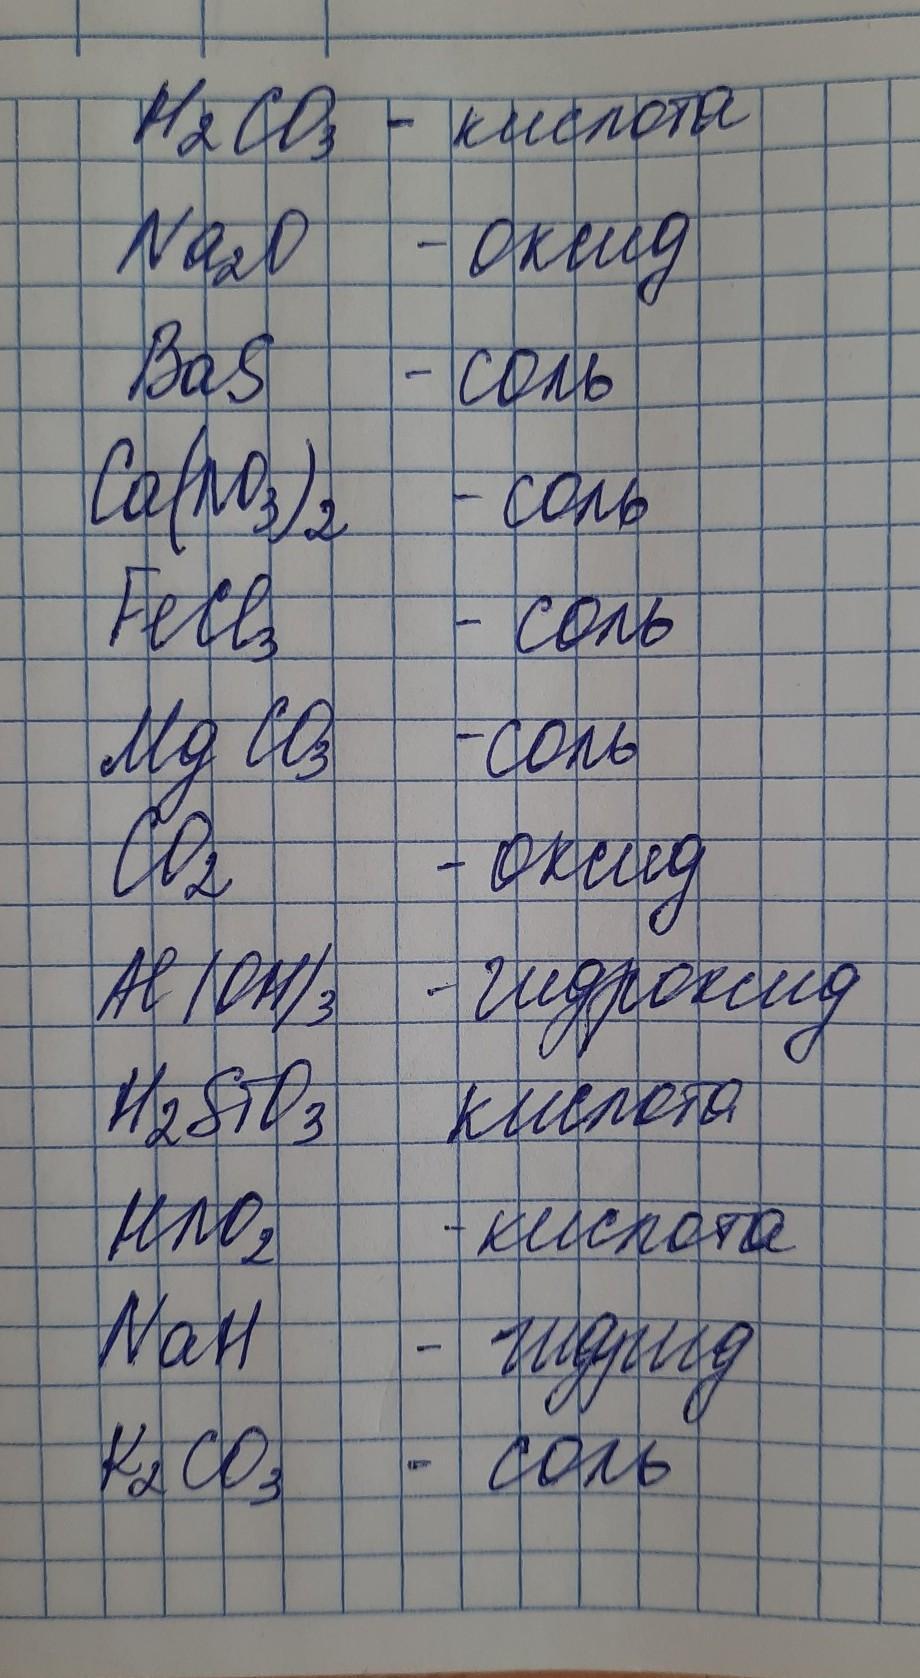 H₂CO₃ - кислота
Na₂O - оксид
BaS - соль
Ca(NO₃)₂ - соль
FeCl₃ - соль
MgCO₃ - соль
CO₂ - оксид
Al(OH)₃ - гидроксид
H₂SiO₃ кислота
HNO₂ - кислота
NaH - гидрид
K₂CO₃ - соль